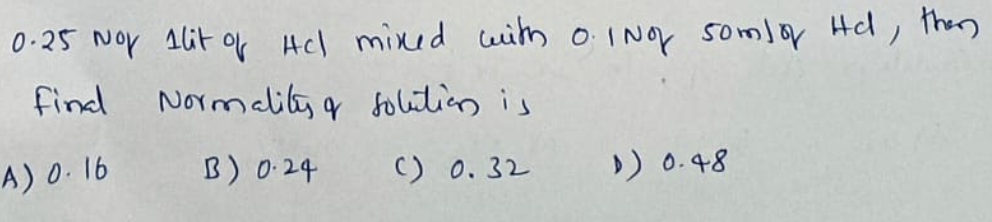 0.25 N of 1lit of HCl mixed with 0.1N of 50ml of HCl, then
find Normality of solution is
A) 0.16 B) 0.24 C) 0.32 D) 0.48